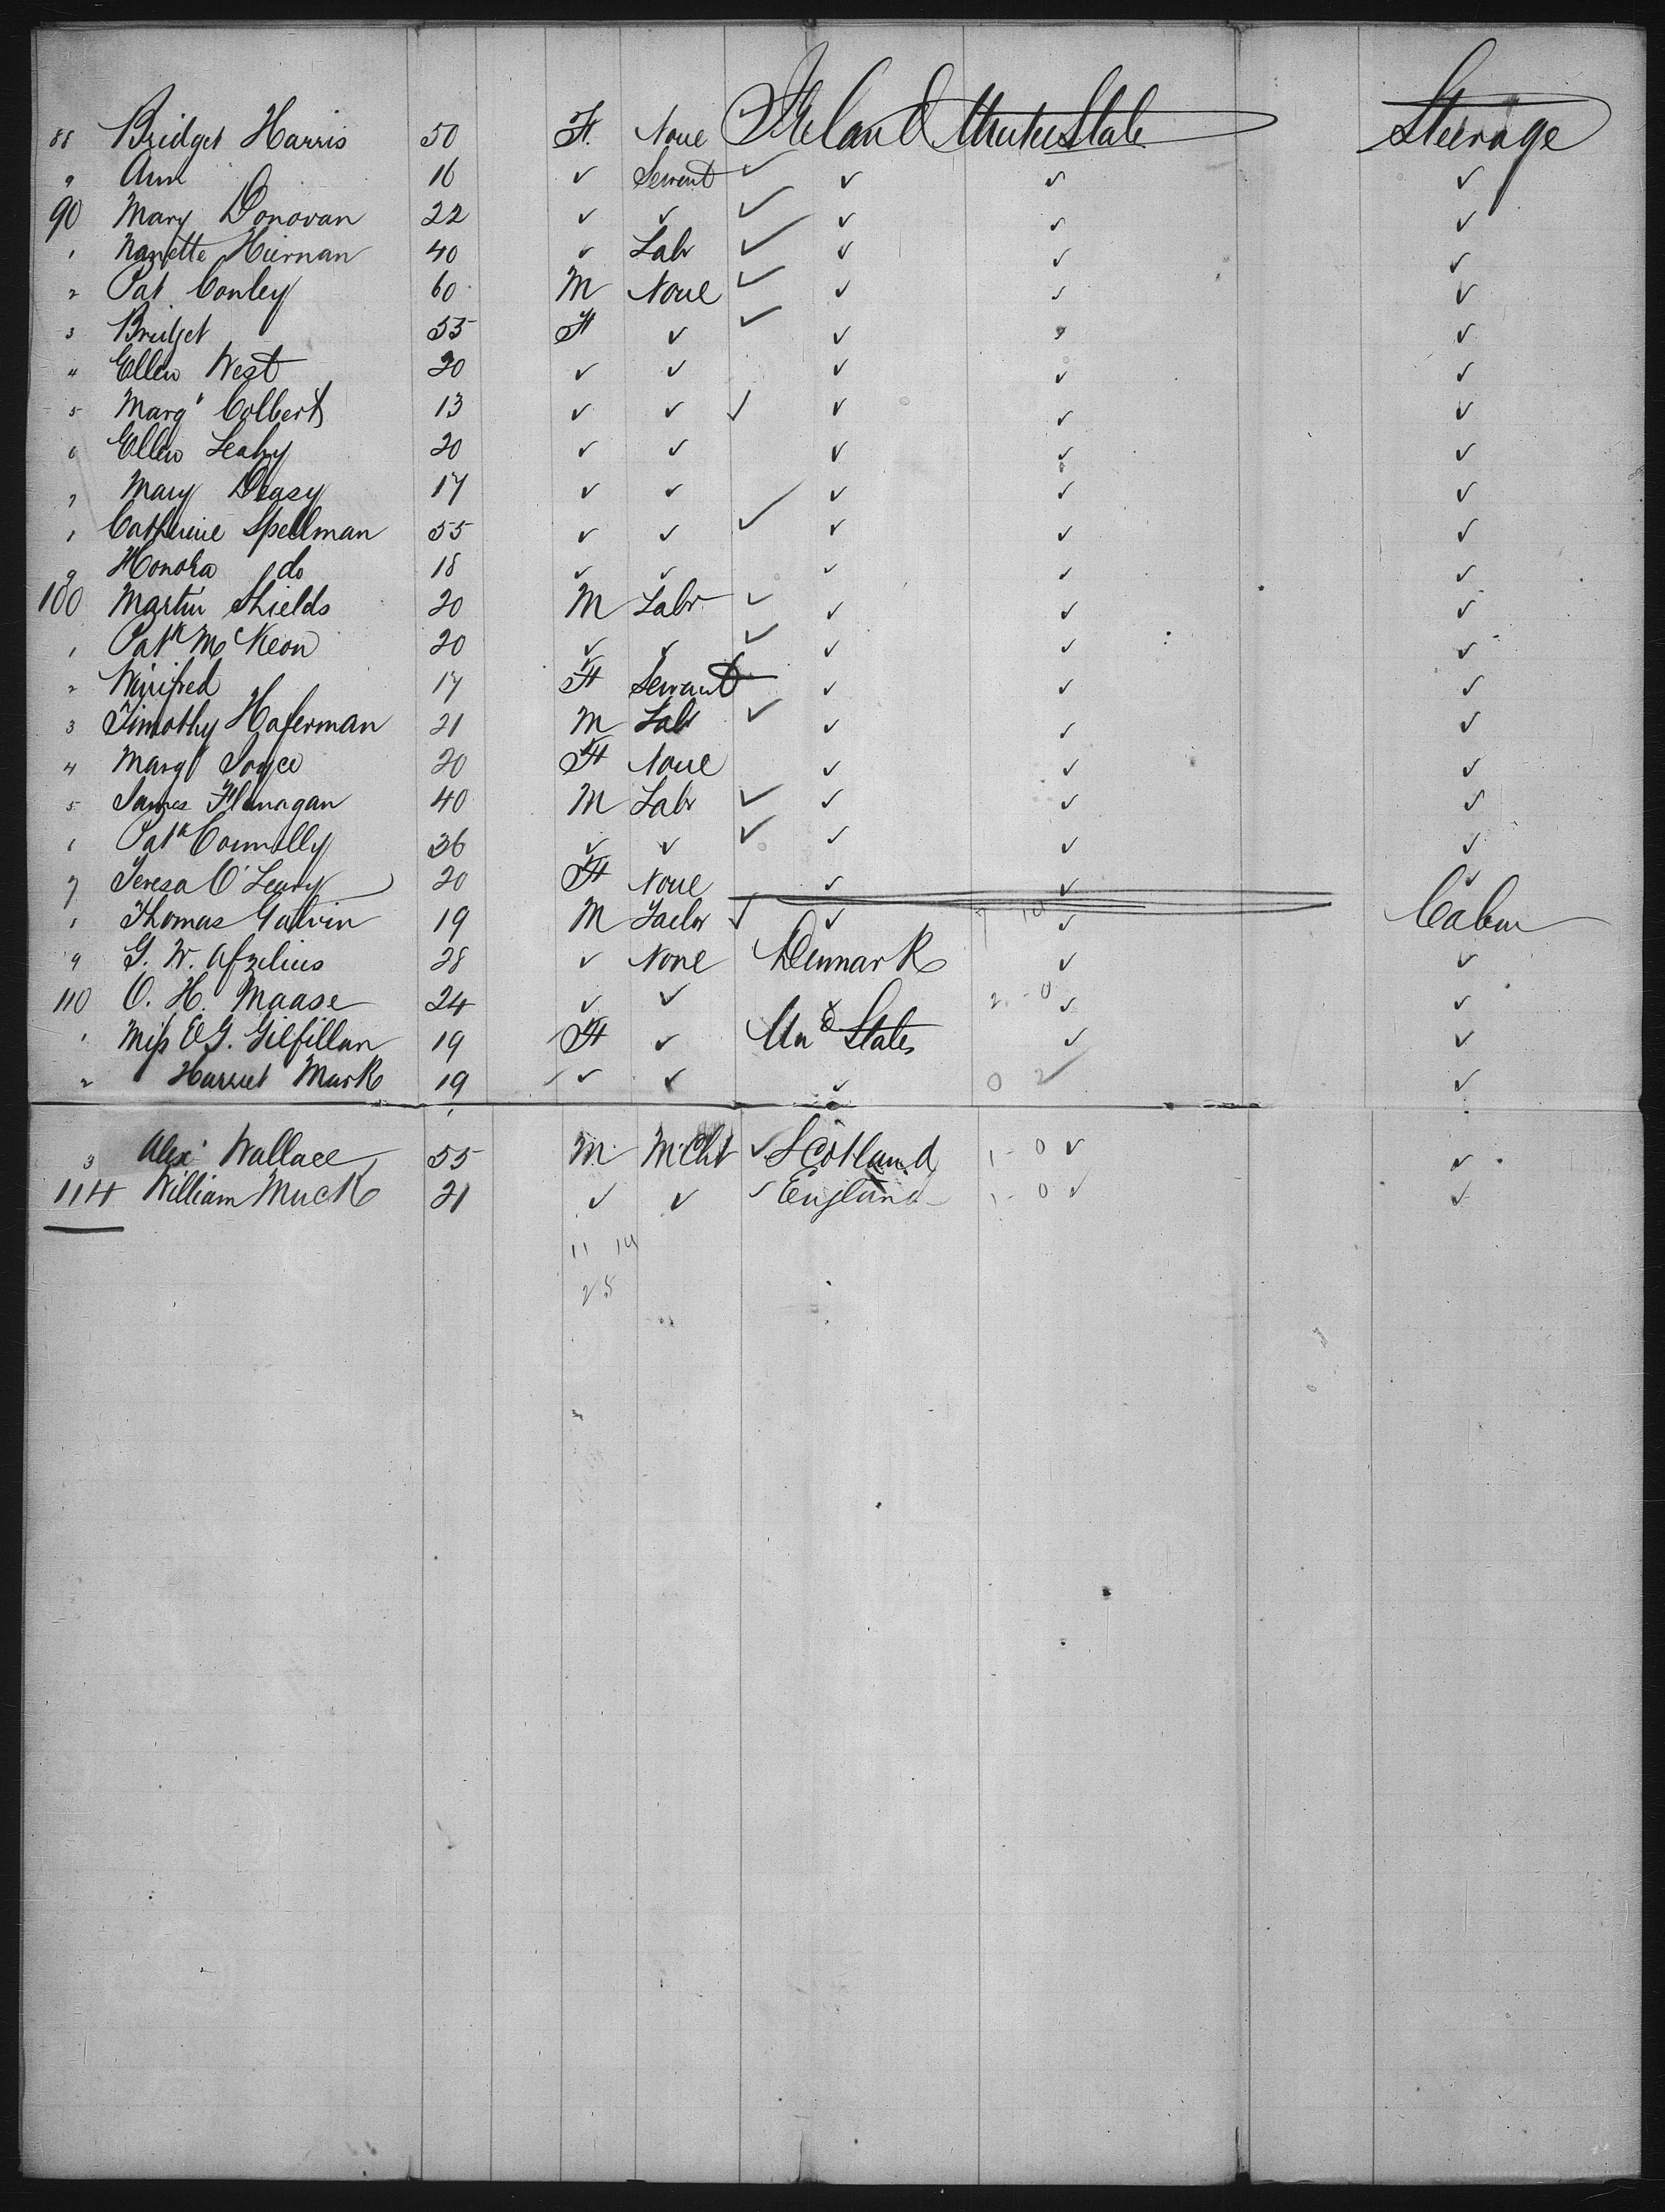 88 Bridget Harris 50 F. None Ireland United State Steerage
9 Ann 16 ✓ Servant ✓ ✓ ✓ ✓
90 Mary Donovan 22 ✓ ✓ ✓ ✓ ✓ ✓
1 Nanette Hiernan 40 ✓ Labr ✓ ✓ ✓ ✓
2 Pat Conley 60 M None ✓ ✓ ✓ ✓
3 Bridget 55 F ✓ ✓ ✓ ✓ ✓
4 Ellen West 20 ✓ ✓ ✓ ✓ ✓
5 Margt Colbert 13 ✓ ✓ ✓ ✓ ✓ ✓
6 Ellen Leahy 20 ✓ ✓ ✓ ✓ ✓
7 Mary Deasy 17 ✓ ✓ ✓ ✓ ✓
8 Catherine Spellman 55 ✓ ✓ ✓ ✓ ✓ ✓
9 Honora do 18 ✓ ✓ ✓ ✓ ✓
100 Martin Shields 20 M Labr ✓ ✓ ✓ ✓
1 Patk McKeon 20 ✓ ✓ ✓ ✓ ✓ ✓
2 Winifred 17 F Servant ✓ ✓ ✓
3 Timothy Haferman 21 M Labr ✓ ✓ ✓ ✓
4 Margt Joyce 20 F None ✓ ✓ ✓
5 James Flanagan 40 M Labr ✓ ✓ ✓ ✓
6 Patk Connolly 36 ✓ ✓ ✓ ✓ ✓ ✓
7 Teresa O'Leary 20 F None ✓ ✓ ✓
8 Thomas Galvin 19 M Tailor ✓ ✓ ✓ Cabin
9 G. W. Afzelius 28 ✓ None Denmark ✓ ✓
110 O. H. Maase 24 ✓ ✓ ✓ 2 - 0 ✓ ✓
1 Miss E G. Gilfillan 19 F ✓ Und States ✓ ✓
2 Harriet Mark 19 ✓ ✓ ✓ 0 2 ✓
3 Alexr Wallace 55 M McHt ✓ Scotland 1 - 0 ✓ ✓
114 William Muck 21 ✓ ✓ ✓ England 1 - 0 ✓ ✓
11 14
25